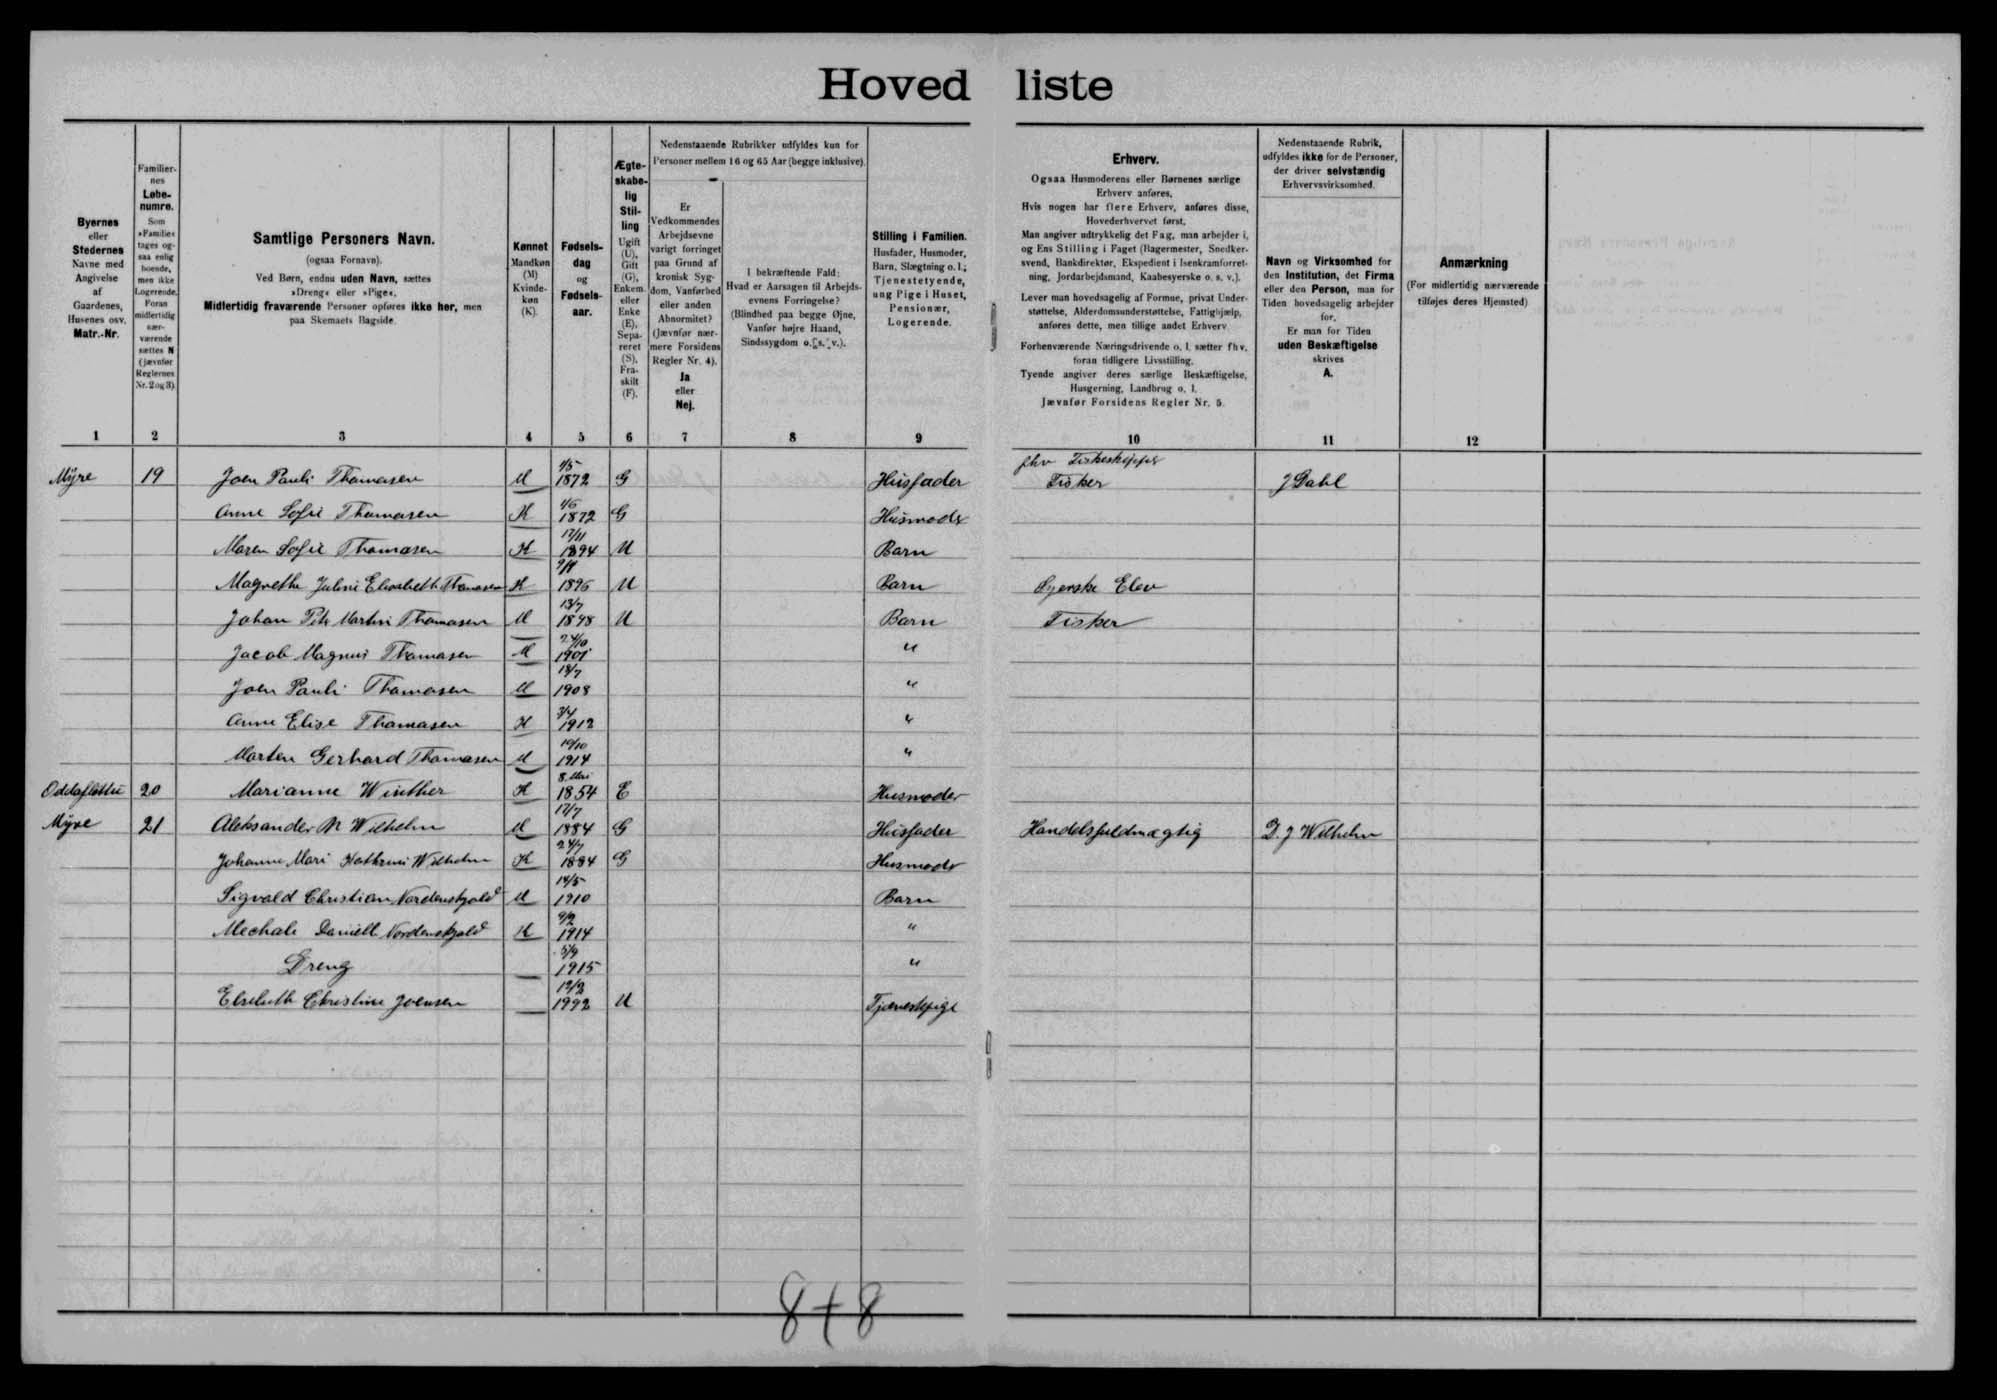 Hoved liste
Byernes
eller
Stedernes
Navne med
Angivelse
af
Gaardenes,
Husenes osv.
Matr.-Nr.
Familier-
nes
Løbe-
numre.
Som
»Familie«
tages og-
saa enlig
boende,
men ikke
Logerende.
Foran
midlertidig
nær-
værende
sættes N
(jævnfør
Reglernes
Nr. 2 og 3).
Samtlige Personers Navn.
(ogsaa Fornavn).
Ved Børn, endnu uden Navn, sættes
»Dreng« eller »Pige«.
Midlertidig fraværende Personer opføres ikke her, men
paa Skemaets Bagside.
Kønnet
Mandkøn
(M)
Kvinde-
køn
(K).
Fødsels-
dag
og
Fødsels-
aar.
Ægte-
skabe-
lig
Stil-
ling
Ugift
(U),
Gift
(G),
Enkem.
eller
Enke
(E),
Sepa-
reret
(S),
Fra-
skilt
(F).
Nedenstaaende Rubrikker udfyldes kun for
Personer mellem 16 og 65 Aar (begge inklusive).
Er
Vedkommendes
Arbejdsevne
varigt forringet
paa Grund af
kronisk Syg-
dom, Vanførhed
eller anden
Abnormitet?
(Jævnfør nær-
mere Forsidens
Regler Nr. 4).
Ja
eller
Nej.
I bekræftende Fald:
Hvad er Aarsagen til Arbejds-
evnens Forringelse?
(Blindhed paa begge Øjne,
Vanfør højre Haand,
Sindssygdom o. s. v.).
Stilling i Familien.
Husfader, Husmoder,
Barn, Slægtning o. l.;
Tjenestetyende,
ung Pige i Huset,
Pensionær,
Logerende.
Erhverv.
Ogsaa Husmoderens eller Børnenes særlige
Erhverv anføres.
Hvis nogen har flere Erhverv, anføres disse,
Hovederhvervet først.
Man angiver udtrykkelig det Fag, man arbejder i,
og Ens Stilling i Faget (Bagermester, Snedker-
svend, Bankdirektør, Ekspedient i Isenkramforret-
ning, Jordarbejdsmand, Kaabesyerske o. s. v.).
Lever man hovedsagelig af Formue, privat Under-
støttelse, Alderdomsunderstøttelse, Fattighjælp,
anføres dette, men tillige andet Erhverv
Forhenværende Næringsdrivende o. l. sætter fhv.
foran tidligere Livsstilling.
Tyende angiver deres særlige Beskæftigelse,
Husgerning, Landbrug o. l.
Jævnfør Forsidens Regler Nr. 5.
Nedenstaaende Rubrik,
udfyldes ikke for de Personer,
der driver selvstændig
Erhvervsvirksomhed.
Navn og Virksomhed for
den Institution, det Firma
eller den Person, man for
Tiden hovedsagelig arbejder
for.
Er man for Tiden
uden Beskæftigelse
skrives
A.
Anmærkning
(For midlertidig nærværende
tilføjes deres Hjemsted)
1 2 3 4 5 6 7 8 9 10 11 12
Myre 19 Joen Pauli Thomasen M 1/5 1872 G Husfader fhv Fiskeskipper Fisker J Dahl
Anne Sofie Thomasen K 1/6 1872 G Husmoder
Maren Sofie Thomasen K 17/11 1894 U Barn
Magrethe Juline Elisabeth Thomasen K 9/4 1896 U Barn Syerske Elev
Johan Petr Martin Thomasen M 13/7 1898 U Barn Fisker
Jacob Magnus Thomasen M 24/10 1901 "
Joen Pauli Thomasen M 18/7 1908 "
Anne Elise Thomasen K 3/4 1912 "
Morten Gerhard Thomasen M 19/10 1914 "
20 Marianne Winther K 8 Mai 1854 E Husmoder
Myre 21 Aleksander M Wilhelm M 17/7 1884 G Husfader Handelsfuldmægtig D. J Wilhelm
Johanne Mari Kathrine Wilhelm K 24/7 1884 G Husmoder
Sigvald Christian Nordenskjold M 14/5 1910 Barn
Mechale Danielle Nordenskjold K 9/2 1914 "
Dreng 5/9 1915 "
Elsebeth Christine Joensen 12/2 1992 U Tjenestepige
8+8